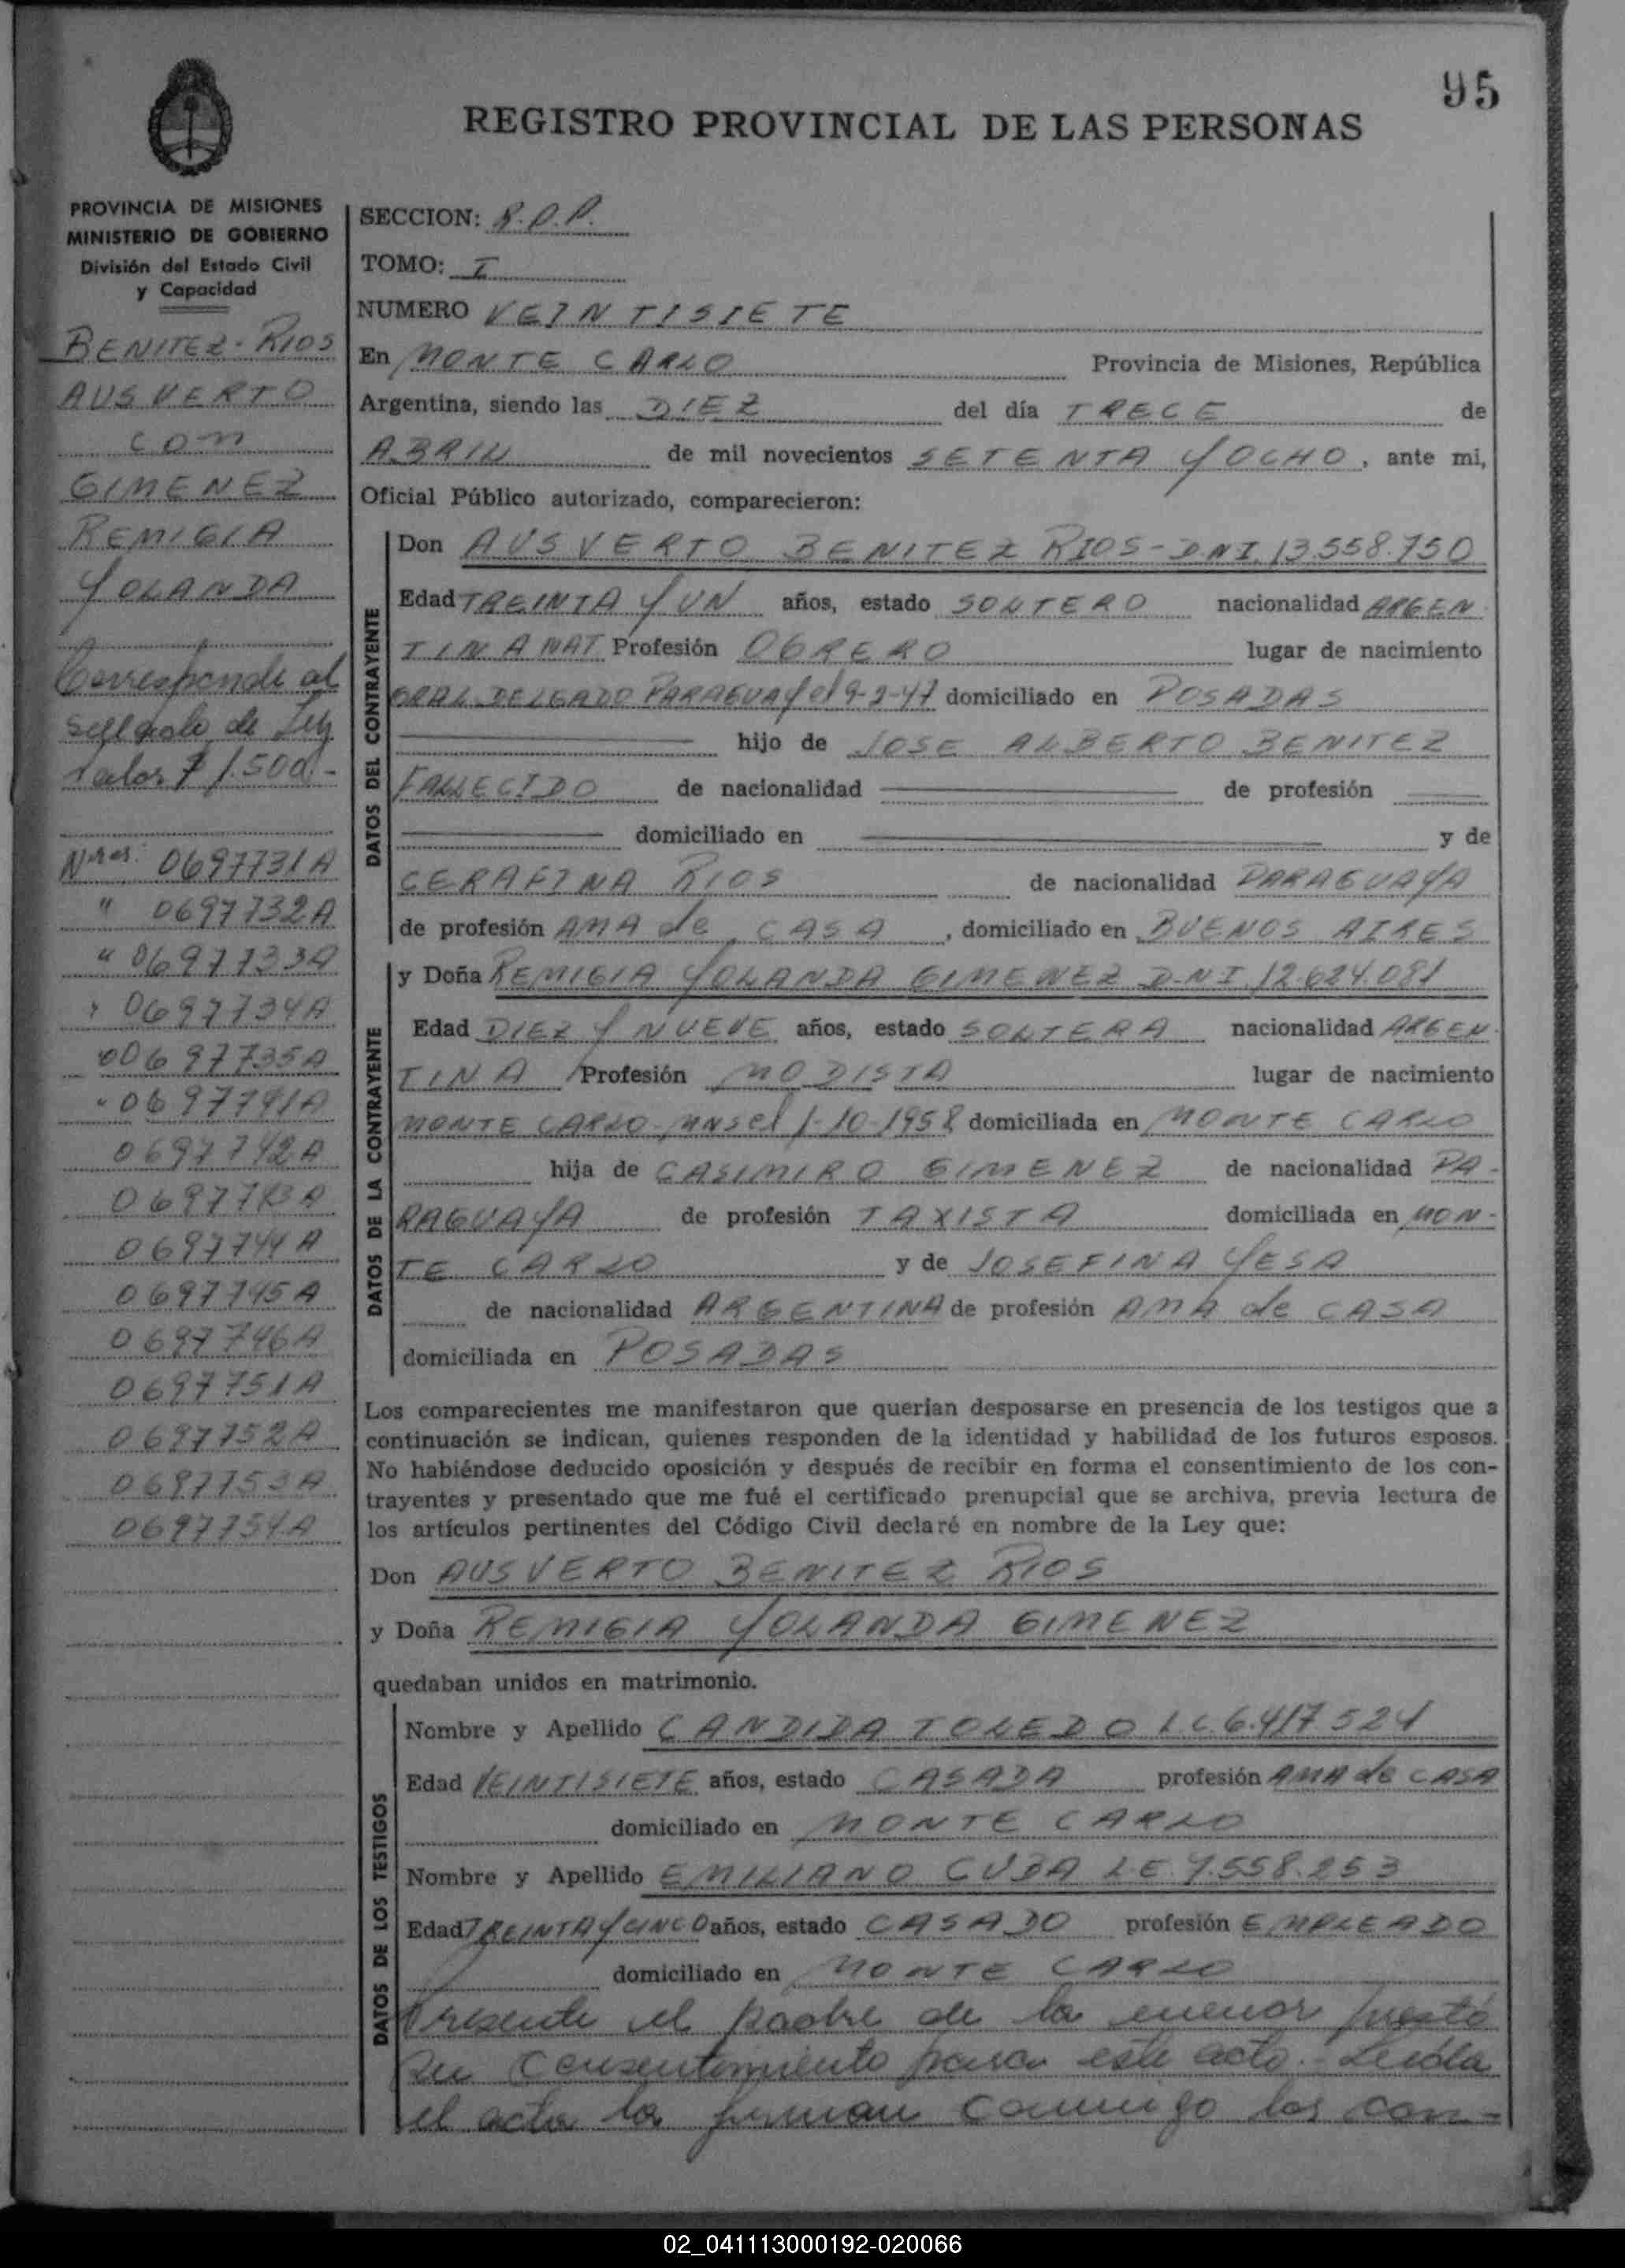 95
REGISTRO PROVINCIAL DE LAS PERSONAS
PROVINCIA DE MISIONES
MINISTERIO DE GOBIERNO
División del Estado Civil
y Capacidad
BENITEZ-RIOS
AUSVERTO
con
GIMENEZ
REMIGIA
YOLANDA
Corresponde al
sellado de Ley
valor $ 1.500.-
Nros: 0697731A
" 0697732A
" 0697733A
" 0697734A
" 0697735A
" 0697741A
0697742A
0697743A
0697744A
0697745A
0697746A
0697751A
0697752A
0697753A
0697754A
SECCION: R.D.P.
TOMO: I
NUMERO VEINTISIETE
En MONTE CARLO Provincia de Misiones, República
Argentina, siendo las DIEZ del día TRECE de
ABRIL de mil novecientos SETENTA Y OCHO, ante mi,
Oficial Público autorizado, comparecieron:
DATOS DEL CONTRAYENTE
Don AUSVERTO BENITEZ RIOS-D.N.I. 13.558.750
Edad TREINTA Y UN años, estado SOLTERO nacionalidad ARGEN
TINA NAT Profesión OBRERO lugar de nacimiento
GRAL DELGADO PARAGUAY el 9-2-47 domiciliado en POSADAS
hijo de JOSE ALBERTO BENITEZ
FALLECIDO de nacionalidad de profesión
domiciliado en y de
CERAFINA RIOS de nacionalidad PARAGUAYA
de profesión AMA de CASA, domiciliado en BUENOS AIRES
DATOS DE LA CONTRAYENTE
y Doña REMIGIA YOLANDA GIMENEZ D.N.I. 12.624.081
Edad DIEZ Y NUEVE años, estado SOLTERA nacionalidad ARGEN
TINA Profesión MODISTA lugar de nacimiento
MONTE CARLO-MNS el 1-10-1958 domiciliada en MONTE CARLO
hija de CASIMIRO GIMENEZ de nacionalidad PA-
RAGUAYA de profesión TAXISTA domiciliada en MON-
TE CARLO y de JOSEFINA YESA
de nacionalidad ARGENTINA de profesión AMA de CASA
domiciliada en POSADAS
Los comparecientes me manifestaron que querían desposarse en presencia de los testigos que a
continuación se indican, quienes responden de la identidad y habilidad de los futuros esposos.
No habiéndose deducido oposición y después de recibir en forma el consentimiento de los con-
trayentes y presentado que me fué el certificado prenupcial que se archiva, previa lectura de
los artículos pertinentes del Código Civil declaré en nombre de la Ley que:
Don AUSVERTO BENITEZ RIOS
y Doña REMIGIA YOLANDA GIMENEZ
quedaban unidos en matrimonio.
DATOS DE LOS TESTIGOS
Nombre y Apellido CANDIDA TOLEDO L.C. 6.417.524
Edad VEINTISIETE años, estado CASADA profesión AMA de CASA
domiciliado en MONTE CARLO
Nombre y Apellido EMILIANO CUBA L.E. 7.558.253
Edad TREINTA Y CINCO años, estado CASADO profesión EMPLEADO
domiciliado en MONTE CARLO
Presente el padre de la menor prestó
su consentimiento para este acto.- Leída
el acta la firman conmigo los con-
02_041113000192-020066